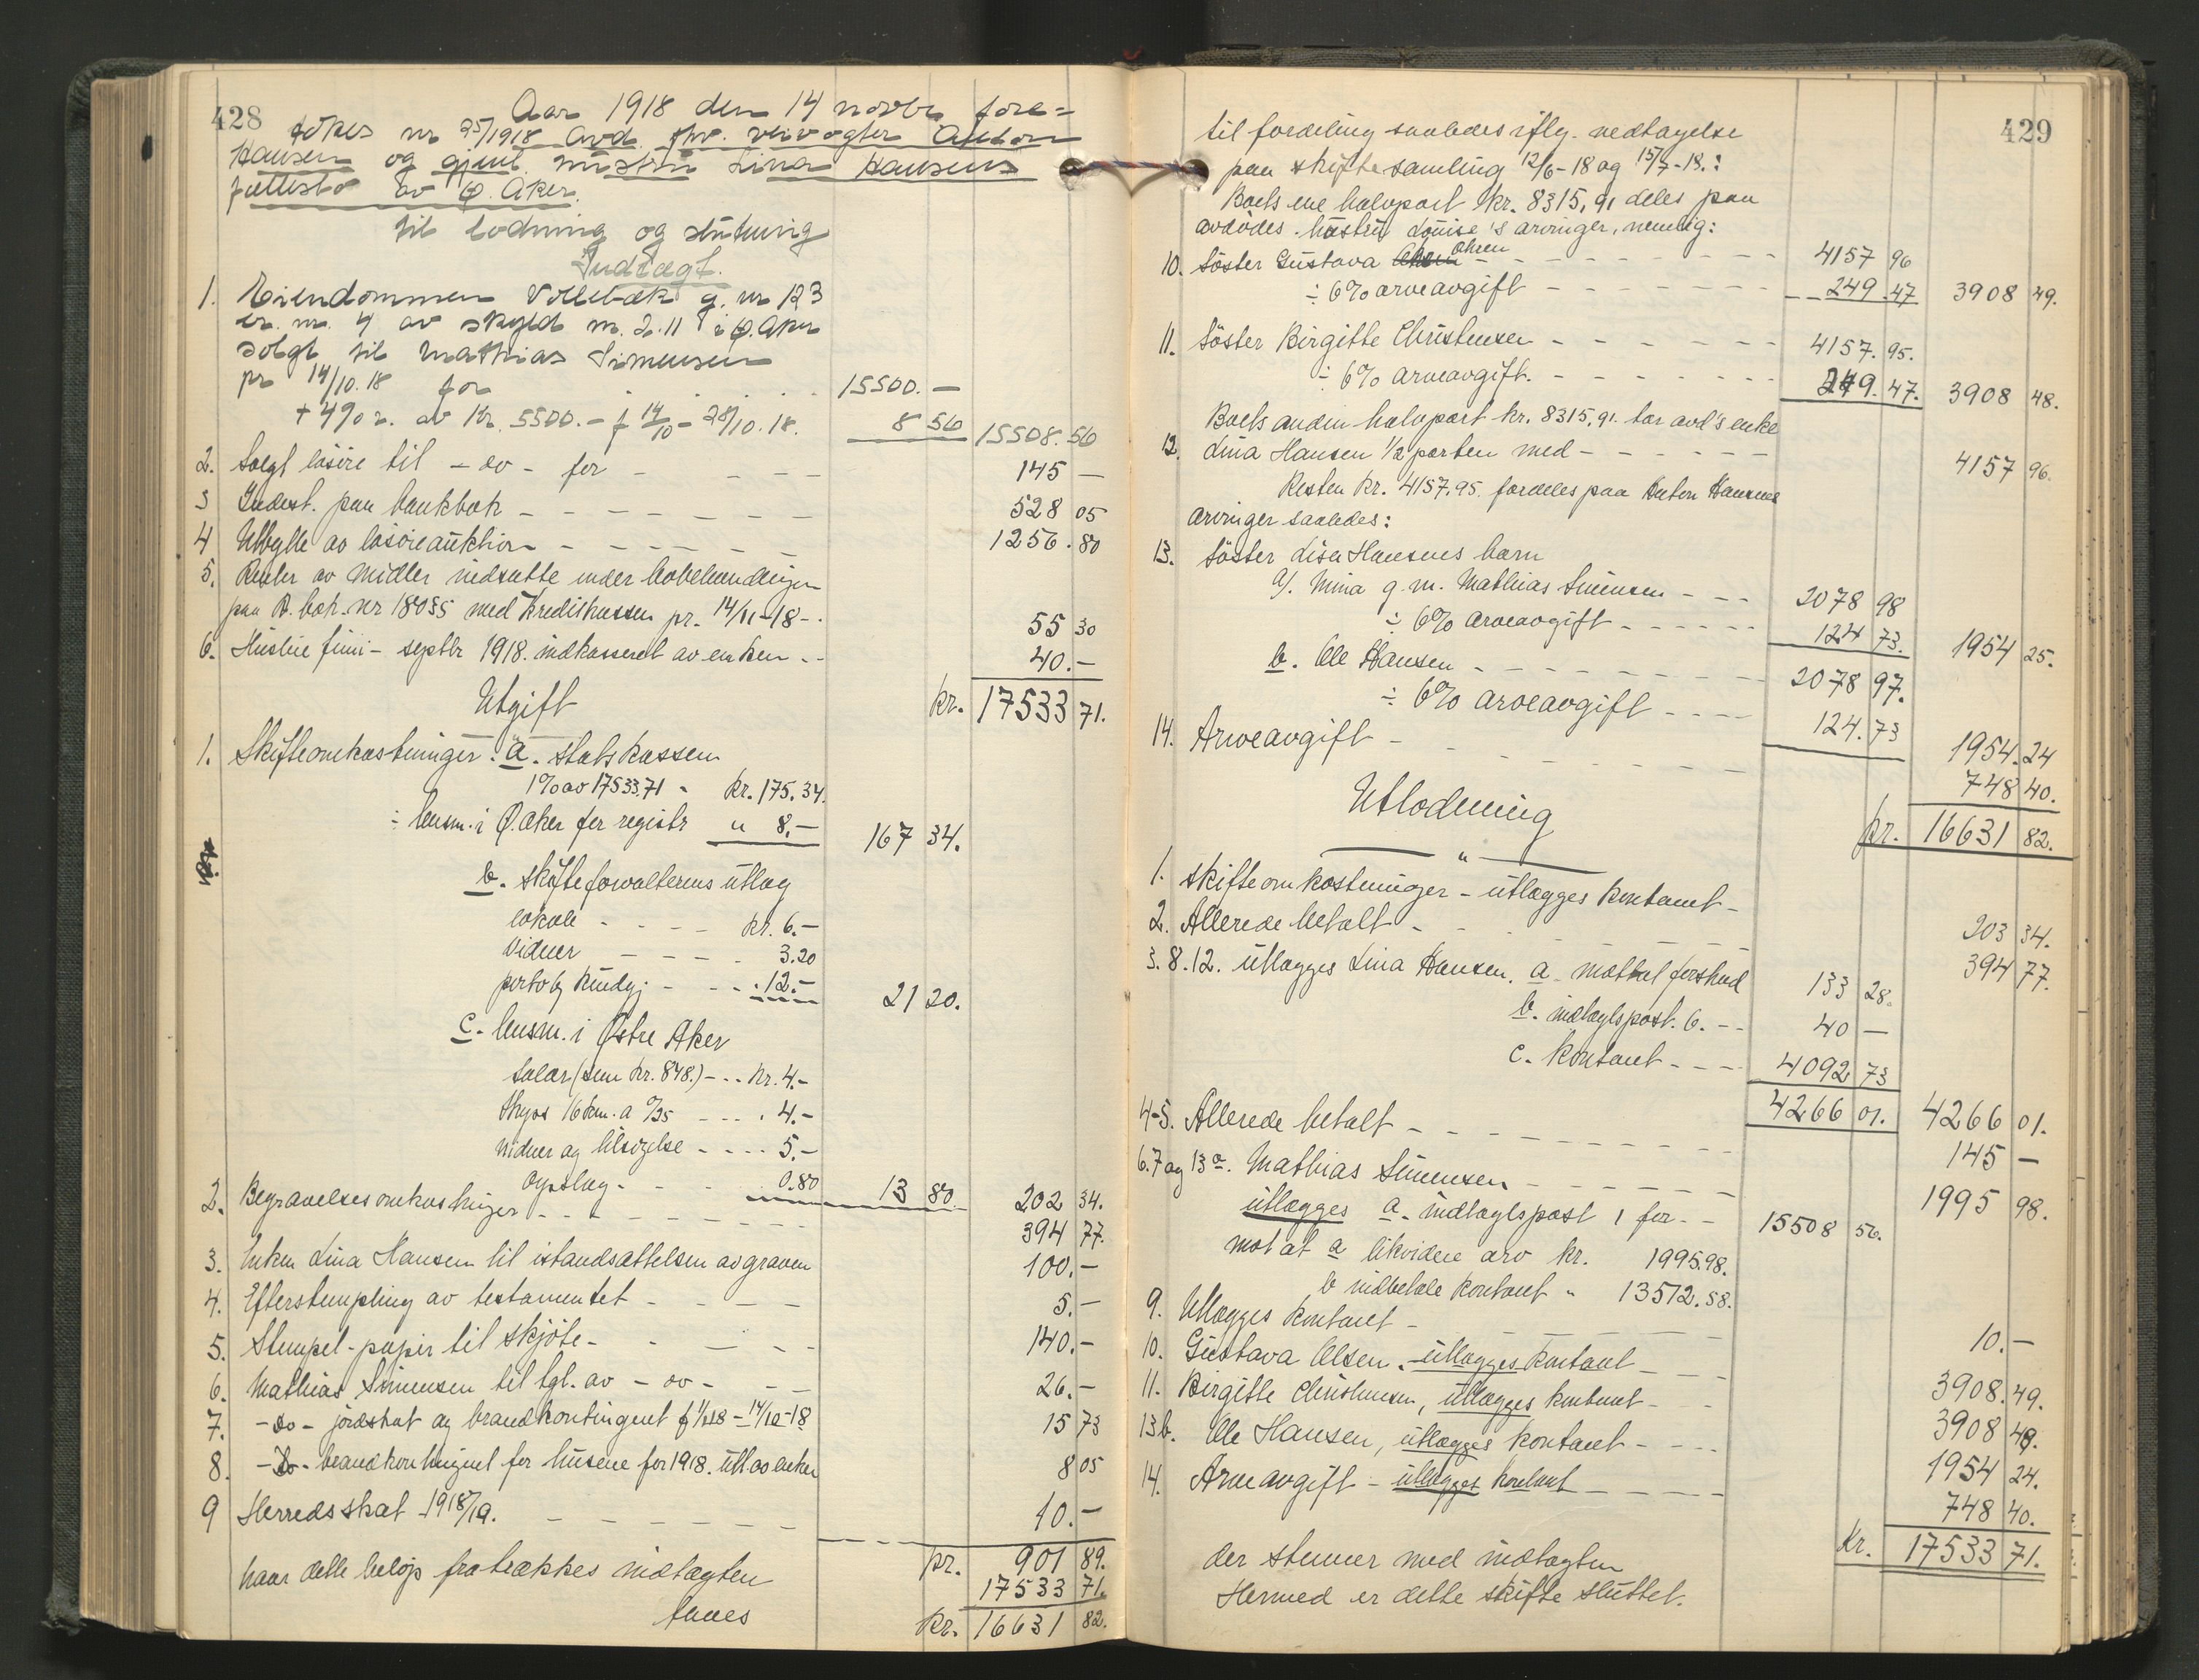 428
Aar 1918 den 14 novbr. fore=
tokes nr 25/1918 Avd. fhv. veivogter Anton
Hansen og gjenl. hustru Lina Hansens
fællesbo av Ø. Aker.
til lodning og slutning
Indtægt.
1. Eiendommen Vollebæk g. nr 123
br. nr. 4 av skyld m. 2.11 i Ø. Aker
solgt til Mathias Simensen
pr 14/10.18 for . . . 15500. —
+ 4% r. av kr. 5500.- f 14/10 - 28/10.18. 8 56 15508. 56
2. Solgt løsøre til - do - for - - - 145 —
3 Indest. paa bankbok - - - - - - 528 05
4 Utbytte av løsøreauktion - - - - - - 1256. 80
5. Renter av midler indsatte under bobehandlingen
paa B. bok nr 18035 med Kreditkassen pr. 14/11-18 - . 55 30
6. Husleie juni - septbr 1918. indkasseret av enken - - 40. —
kr. 17533 71.
Utgift
1. Skifteomkostninger: a. statskassen
1% av 17533.71 - kr. 175.34.
÷ lensm. i Ø. Aker for registr " 8.— 167 34.
b. skifteforvalterens utlæg
lokale - - - - kr. 6.—
vidner - - - - 3.20
porto og kundgj. - - - 12.— 21 20.
c. lensm. i Østre Aker
Salær (sum kr. 848.) - - - kr. 4.-
Skyss 16 km. a 0/25 - - - . 4.-
vidner og tilsigelse - - - - 5.—
Opslag. - - - 0.80 13 80. 202 34.
2. Begravelsesomkostninger - - - - - - 394 77.
3. Enken Lina Hansen til istandsættelsen av graven 100. —
4. Efterstempling av testamentet - - - - 5. —
5. Stempel-papir til skjöte - - - - - 140. —
6. Mathias Simensen til tgl. av - do - - - 26. —
7. - do - jordskat og brandkontingent f 1/1 18 - 14/10-18 15 73
8. - do - brandkontingent for husene for 1918. utl. av enken 8 05
9 Herredsskat 1918/19. - - - - - - 10. —
pr. 901 89.
naar dette belöp fratrækkes indtægten 17533 71.
faaes kr. 16631 82.
429
til fordeling saaledes iflg. vedtagelse
paa skiftesamling 12/6-18 og 15/7-18.:
Boets ene halvpart kr. 8315,91 deles paa
avdødes hustru Louise's arvinger, nemlig:
10. Söster Gustava Olsen - - - - - - - 4157 96
÷ 6% arveavgift - - - - - - 249. 47 3908 49.
11. Söster Birgitte Christensen - - - - - - 4157. 95.
÷ 6% arveavgift. - - - - - 249. 47. 3908 48.
Boets anden halvpart kr. 8315,91. tar avd's enke
12. Lina Hansen 1/2 parten med - - - - - - 4157 96.
Resten kr. 4157.95. fordeles paa Anton Hansens
arvinger saaledes:
13. Söster Lisa Hansens barn
a/. Mina g. m. Mathias Simensen - - - 2078 98
÷ 6% arveavgift - - - - - - 124 73. 1954 25.
b. Ole Hansen - - - - - - - 2078 97.
÷ 6% arveavgift - - - - 124. 73 1954. 24
14. Arveavgift - - - - - - - 748 40.
kr. 16631 82.
Utlodning
"
1. Skifteomkostninger - utlægges kontant - 203 34.
2. Allerede betalt - - - - - - - 394 77.
3. 8. 12. utlægges Lina Hansen. a. mottat forskud 133 28.
b. indtægtspost. 6. - - 40 —
c. kontant - - - 4092 73
4266 01. 4266 01.
4-5. Allerede betalt - - - - - - - 145 —
6. 7 og 13 a. Mathias Simensen - - - - - - 1995 98.
utlægges a. indtægtspost 1 for - - 15508 56.
mot at a likvidere arv kr. 1995.98.
b indbetale kontant " 13512.58.
9. Utlægges kontant - - - - - - 10. —
10. Gustava Olsen. - utlægges kontant - - - 3908. 49.
11. Birgitte Christensen, utlægges kontant - - 3908 48.
13b. Ole Hansen, utlægges kontant - - - - 1954 24.
14. Arveavgift - utlægges kontant - - - - 748 40.
Kr. 17533 71.
der stemmer med indtægten
Hermed er dette skifte sluttet.